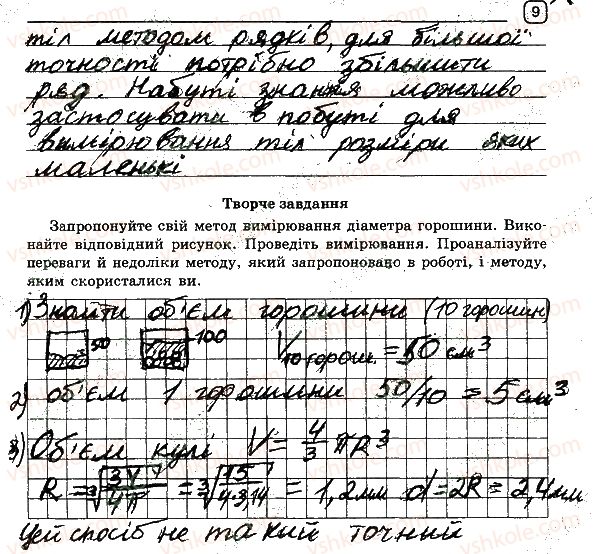 9
тіл методом рядків, для більшої
точності потрібно збільшити
ряд. Набуті знання можливо
застосувати в побуті для
вимірювання тіл розміри яких
маленькі
Творче завдання
Запропонуйте свій метод вимірювання діаметра горошини. Вико-
найте відповідний рисунок. Проведіть вимірювання. Проаналізуйте
переваги й недоліки методу, який запропоновано в роботі, і методу,
яким скористалися ви.
1) Знайти об'єм горошини (10 горошин)
50 100 V10 горош. = 50 см³
2) об'єм 1 горошини 50/10 = 5 см³
3) Об'єм кулі V = 4/3 πR³
R = ³√(3V/4π) = ³√(15/4·3,14) = 1,2мм d = 2R = 2,4мм
Цей спосіб не такий точний